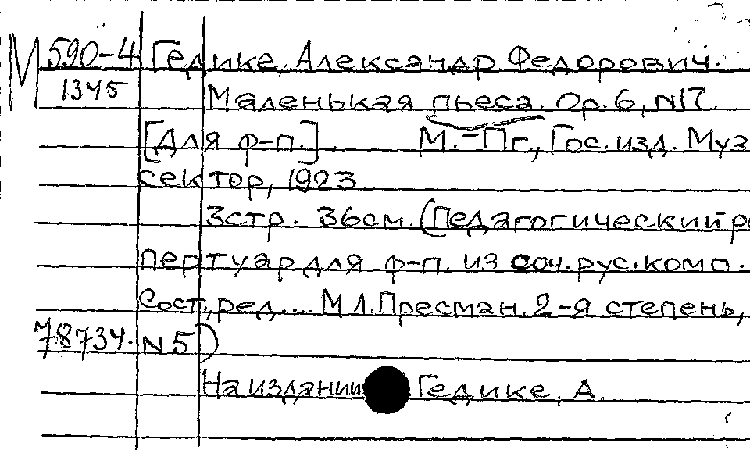 М 590-4 Гедике, Александр Федорович.
1345 Маленькая пьеса. Op. 6, N17
[Для ф-п.]. М.-Пг., Гос. изд. Муз.
сектор, 1923
3стр. 36см. (Педагогический ре
пертуар для ф-п. из соч. рус. комп.
Сост., ред.... М.Л. Пресман. 2-я степень,
78734. N 5)
На издании Гедике, А.